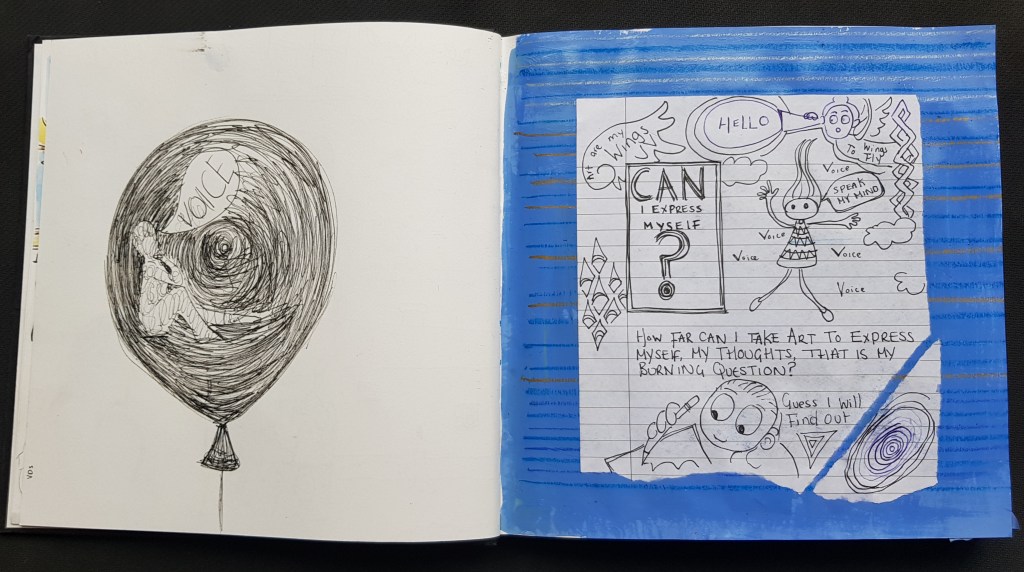 VOICE
VD1
Art are my
Wings
HELLO
To Wings
Fly
CAN
I EXPRESS
MYSELF
?
Voice
SPEAK
MY MIND
Voice
Voice
Voice
Voice
HOW FAR CAN I TAKE ART TO EXPRESS
MYSELF, MY THOUGHTS, THAT IS MY
BURNING QUESTION?
Guess I Will
Find Out